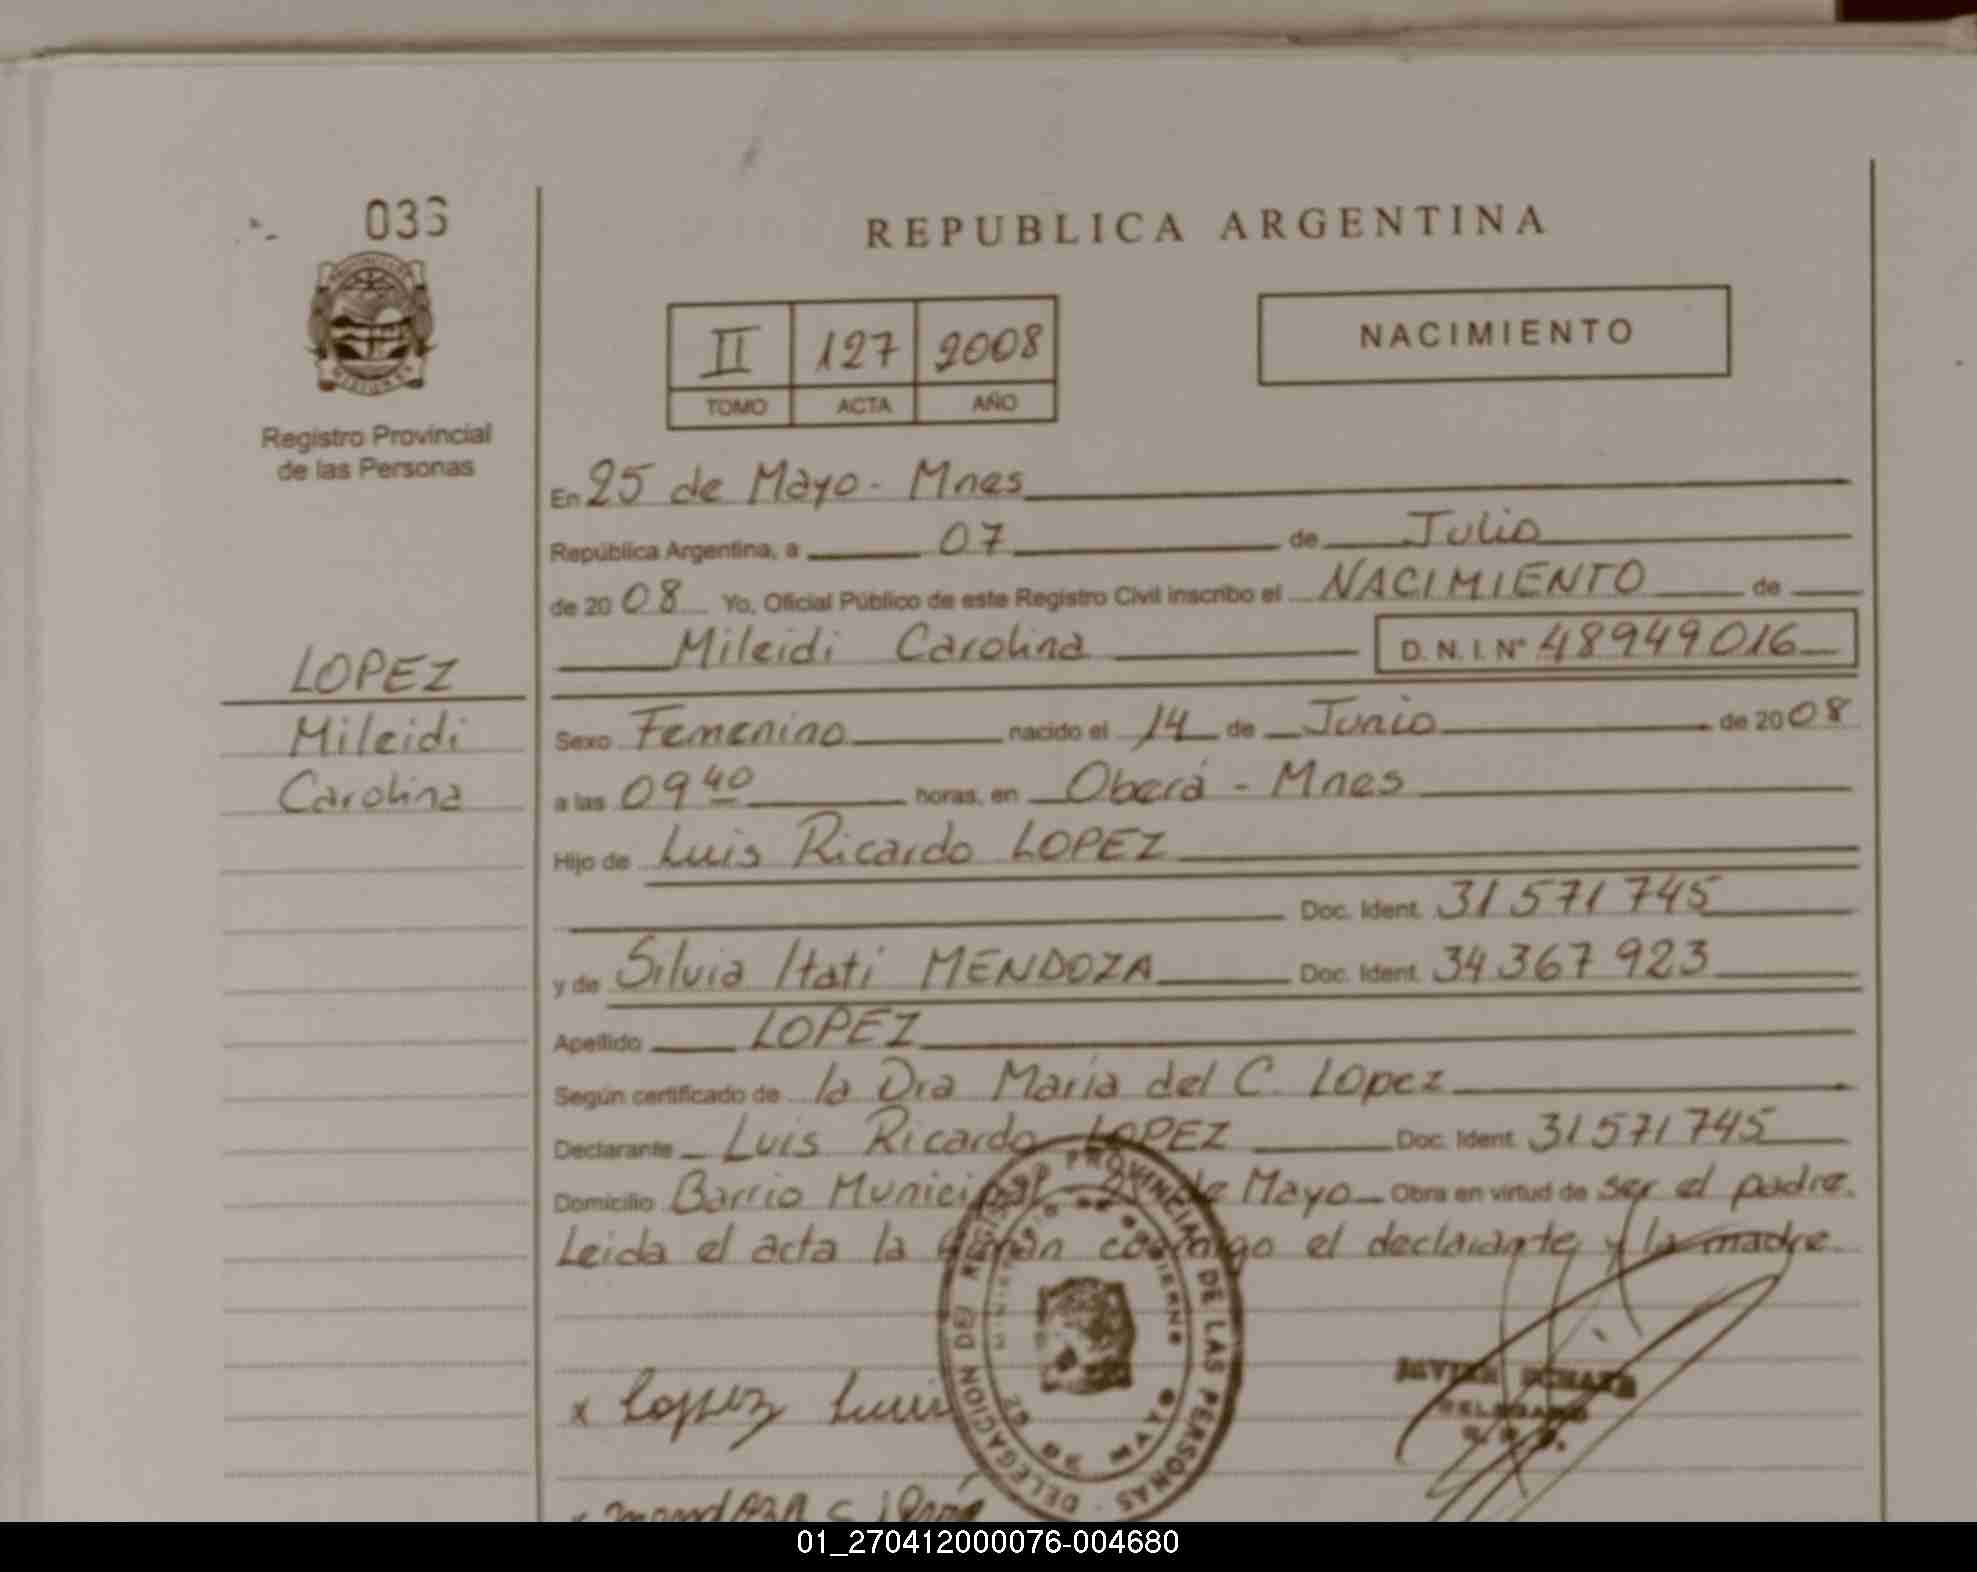 036
REPUBLICA ARGENTINA
II 127 2008
TOMO ACTA AÑO
NACIMIENTO
Registro Provincial
de las Personas
En 25 de Mayo - Mnes
República Argentina, a 07 de Julio
de 20 08 Yo, Oficial Público de este Registro Civil inscribo el NACIMIENTO de
Mileidi Carolina D. N. I. N° 48949016
LOPEZ
Mileidi
Carolina
Sexo Femenino nacido el 14 de Junio de 20 08
a las 09 40 horas, en Oberá - Mnes
Hijo de Luis Ricardo LOPEZ
Doc. Ident. 31571745
y de Silvia Itati MENDOZA Doc. Ident. 34367923
Apellido LOPEZ
Según certificado de la Dra María del C. LOpez
Declarante Luis Ricardo LOPEZ Doc. Ident. 31571745
Domicilio Barrio Municipal - de Mayo Obra en virtud de ser el padre.
Leida el acta la firman conmigo el declarante y la madre.
x Lopez Luis
DELEGACION DEL REGISTRO PROVINCIAL DE LAS PERSONAS
MINISTERIO DE GOBIERNO
25 DE MAYO
JAVIER
DELEGADO
01_270412000076-004680